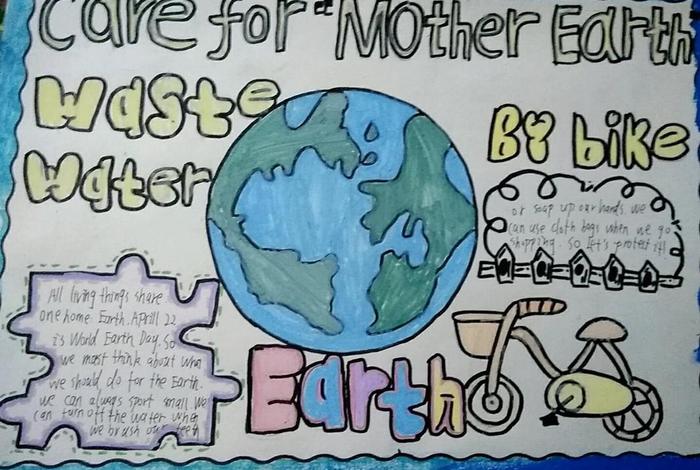 Care for "Mother Earth
Waste
Water
By bike
or soap up our hands. we
can use cloth bags when we go
shopping. So let's protect it!
All living things share
one home: Earth. Aprill 22
is World Earth Day. So
we most think about
we should do for the Earth.
we can always sport small. We
can turn off the water when
we brush our teeth
Earth